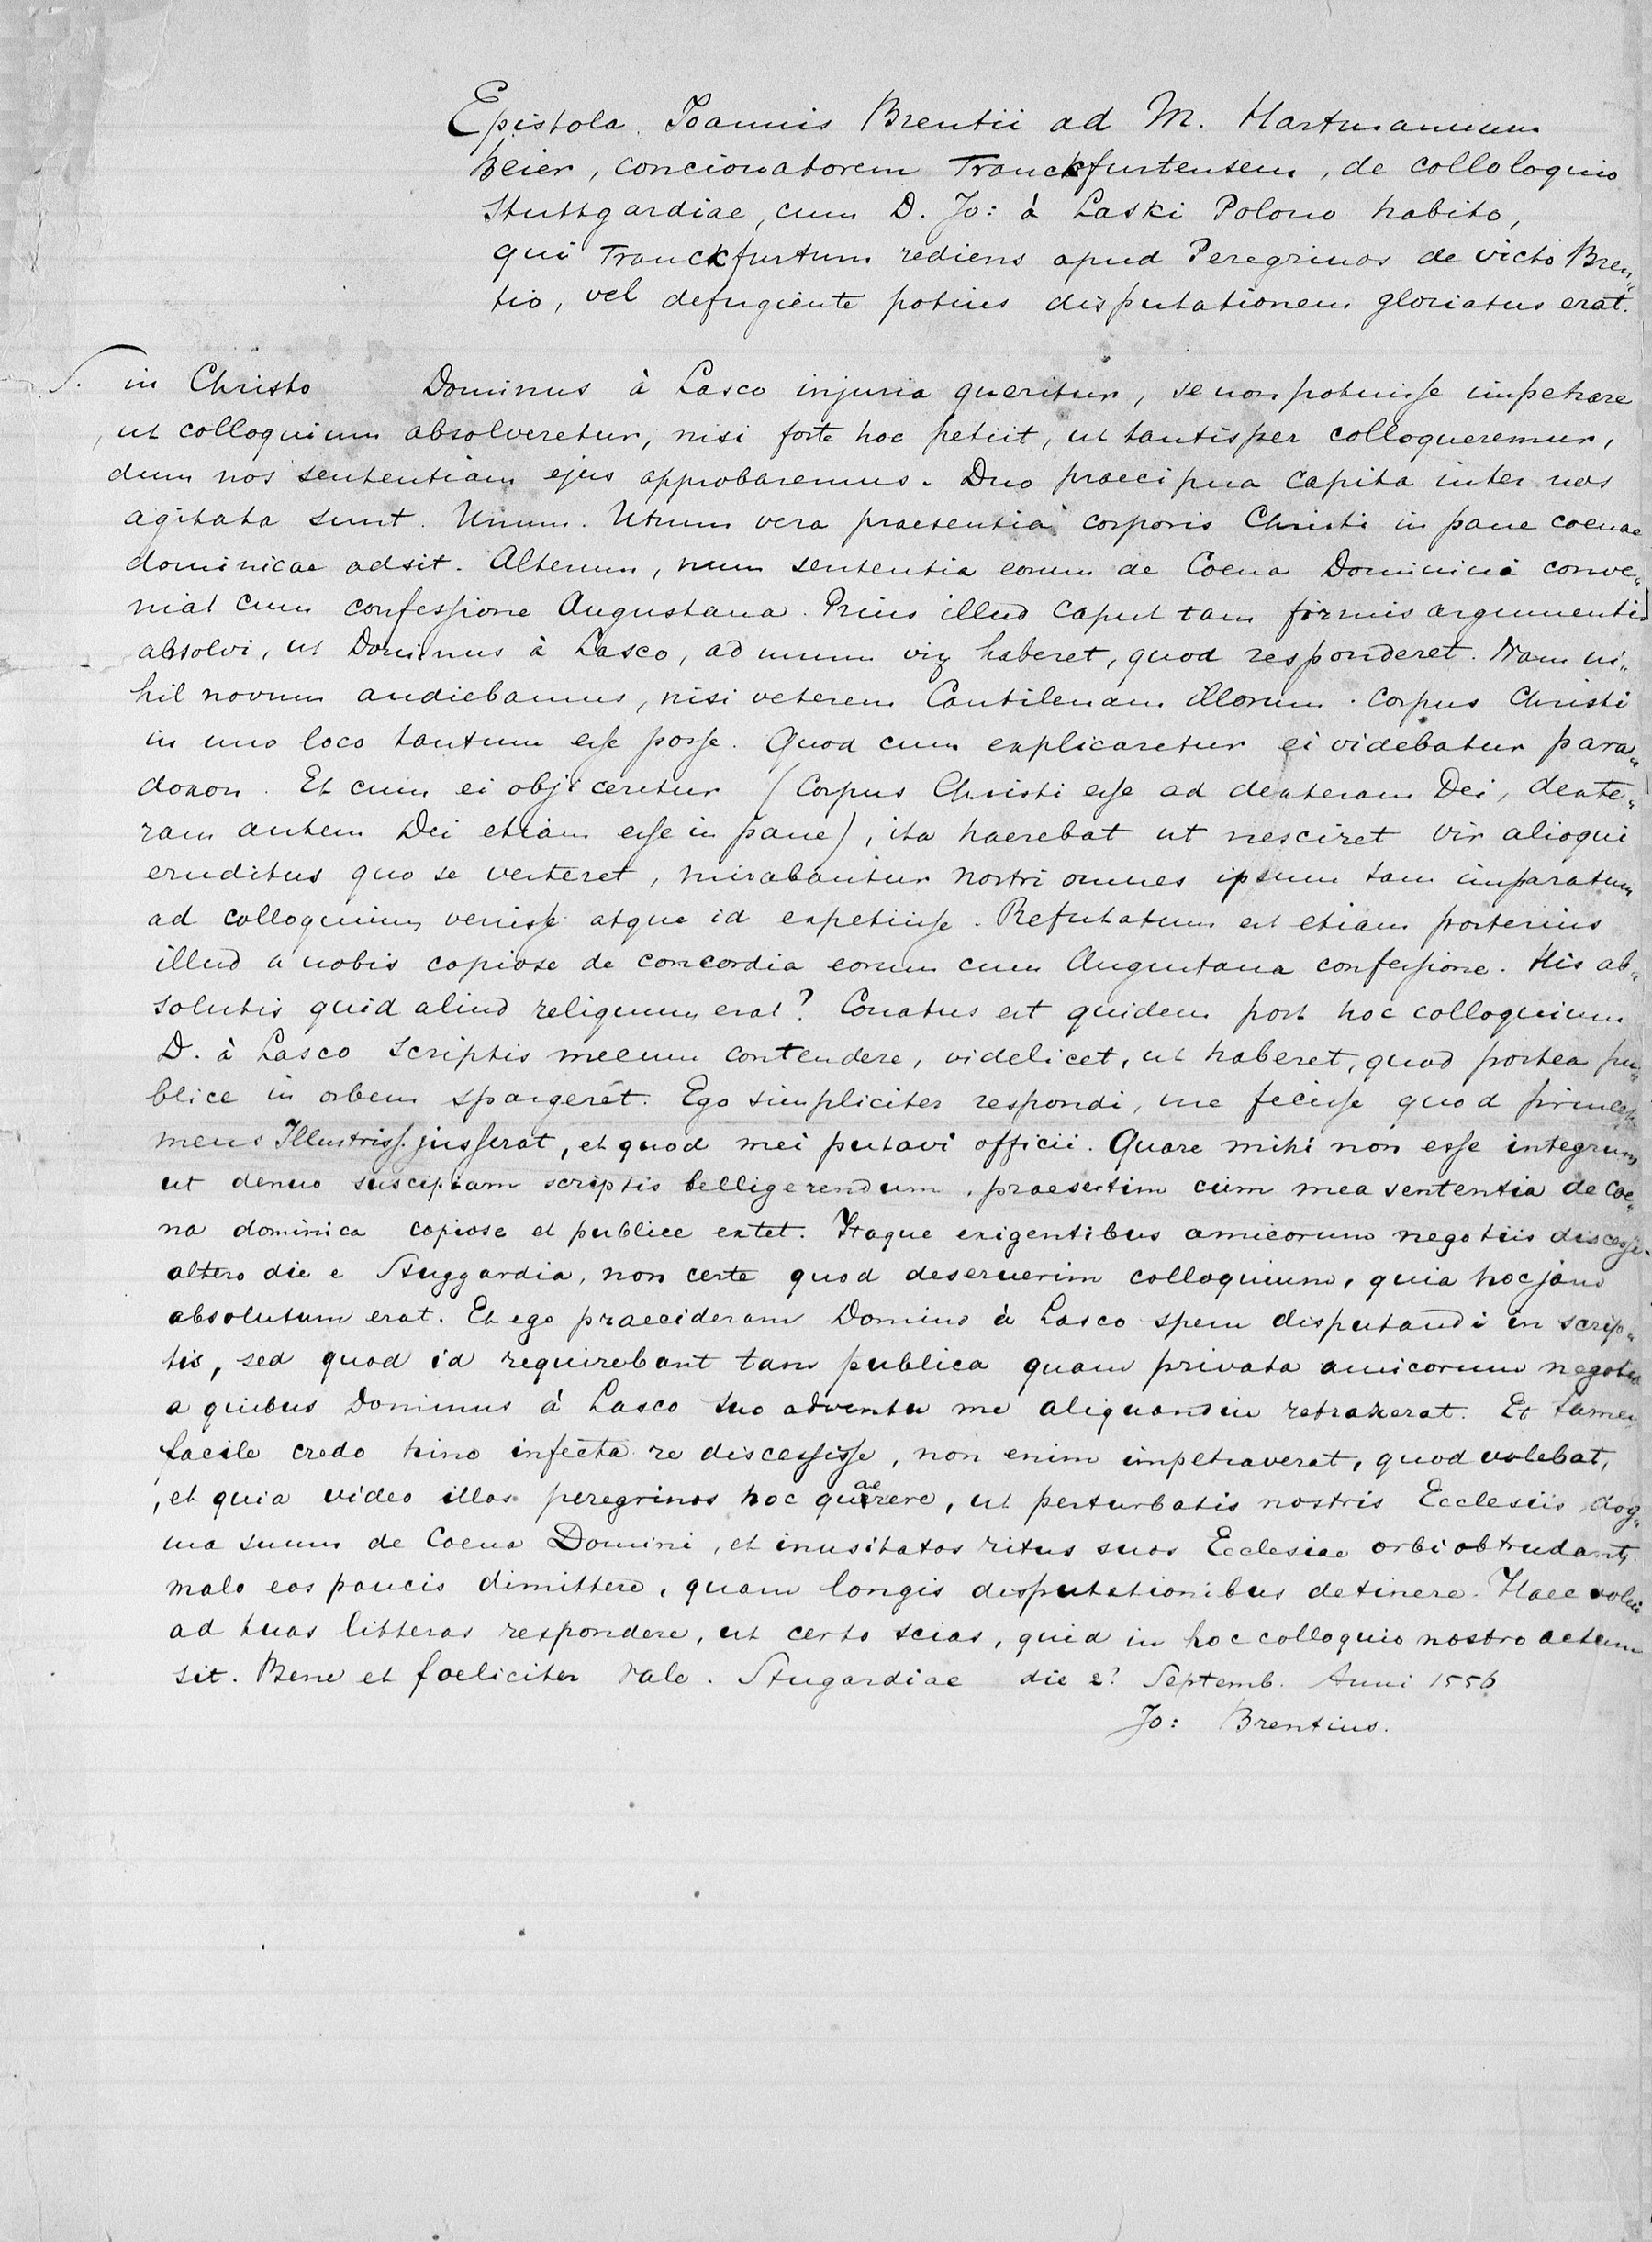 Epistola Joannis Brentii ad M. Hartmannum
Beier, concionatorem Franckfurtensem, de colloloquio
Stuttgardiae, cum D. Jo: à Laski Polono habito,
qui Franckfurtum rediens apud Peregrinos de victo Bren„
tio, vel defugiente potius disputationem gloriatus erat.
S. in Christo Dominus à Lasco injuria queritur, se non potuisse impetrare
, ut colloquium absolveretur, nisi forte hoc petiit, ut tantisper colloqueremur,
dum nos sententiam ejus approbaremus. Duo praecipua capita inter nos
agitata sunt. Unum. Utrum vera praesentia corporis Christi in pane coenae
dominicae adsit. Alterum, num sententia eorum de Coena Dominica conve„
niat cum confessione Augustana. Prius illud caput tam firmis argumentis
absolvi, ut Dominus à Lasco, ad unum vix haberet, quod responderet. Nam ni„
hil novum audiebamus, nisi veterem Cantilenam illorum. Corpus Christi
in uno loco tantum esse posse. Quod cum explicaretur ei videbatur para„
doxon. Et cum ei objiceretur (Corpus Christi esse ad dexteram Dei, dexte„
ram autem Dei etiam esse in pane), ita haerebat ut nesciret vir alioqui
eruditus quo se verteret, mirabantur nostri omnes ipsum tam imparatum
ad colloquium venisse atque id expetiisse. Refutatum est etiam posterius
illud a nobis copiose de concordia eorum cum Augustana confessione. His ab„
solutis quid aliud reliquum erat? Conatus est quidem post hoc colloquium
D. à Lasco scriptis mecum contendere, videlicet, ut haberet, quod postea pu„
blice in orbem spargeret. Ego simpliciter respondi, me fecisse quod princeps
meus Illustriss. jusserat, et quod mei putavi officii. Quare mihi non esse integrum
ut denuo suscipiam scriptis belligerendum, praesertim cùm mea sententia de Coe„
na dominica copiose et publice extet. Itaque exigentibus amicorum negotiis discessi
altero die e Stuggardia, non certe quod deseruerim colloquium, quia hoc jam
absolutum erat. Et ego praecideram Domino à Lasco spem disputandi in scrip„
tis, sed quod id requirebant tam publica quam privata amicorum negotia
a quibus Dominus à Lasco suo adventu me aliquandiu retraxerat. Et tamen
facile credo hinc infecta re discessisse, non enim impetraverat, quod volebat,
, et quia video illos peregrinos hoc quaerere, ut perturbatis nostris Ecclesiis dog„
ma suum de Coena Domini, et inusitatos ritus suos Ecclesiae orbi obtrudant,
malo eos paucis dimittere, quam longis disputationibus detinere. Haec volui
ad tuas litteras respondere, ut certo scias, quid in hoc colloquio nostro actum
sit. Bene et foeliciter vale. Stugardiae die 2? Septemb. Anni 1556
Jo: Brentius.